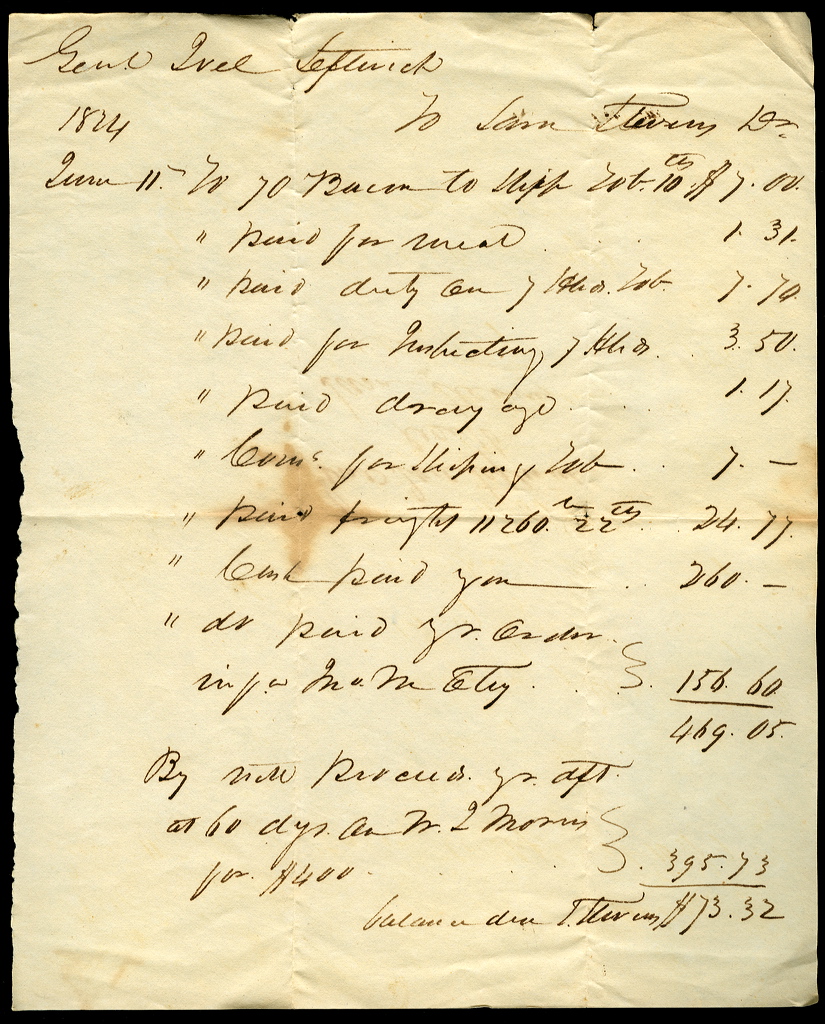 Genl Joel Leftwich
1824 To Saml Stevens Dr.
June 11. To 70 Bacon to Shipp Tob. 10 cts $7.00.
" paid for meal . . . 1.31.
" paid duty on 7 Hhds. Tob. 7.70
" paid for Inspecting 7 Hhds. . 3.50.
" paid drayage . . . 1.17.
" Coms. for Shiping Tob . . 7. —
" paid freight 11260 lb 22 cts . . 24.77.
" Cash paid you . . 260. —
" do paid yr. order
infa Jno. M Otey . . . 156.60
469.05.
By nett proceeds. yr. dft.
at 60 dys. on W. J Morris
for $400 . . . . 395.73
balance due S. Stevens $73.32